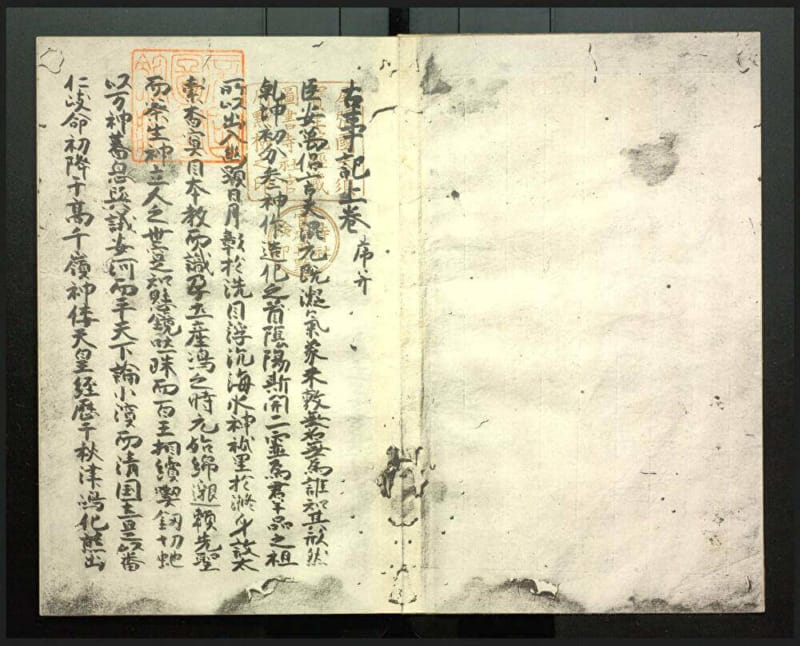 古事記上巻 序并
臣安萬侶言夫混元既凝氣象未敦無名無為誰知其形然
乾坤初分叅神作造化之首陰陽斯開二霊為群品之祖
所以出入幽顕日月彰於洗目浮沉海水神祇呈於滌身故太
素杳冥因本教而識孕土産嶋之時元始綿邈頼先聖
而察生神立人之世寔知懸鏡吐珠而百王相續喫釼切虵
以万神蕃息與議安河而平天下論小濱而清国土是以番
仁岐命初降于高千嶺神倭天皇経歴于秋津嶋化熊出